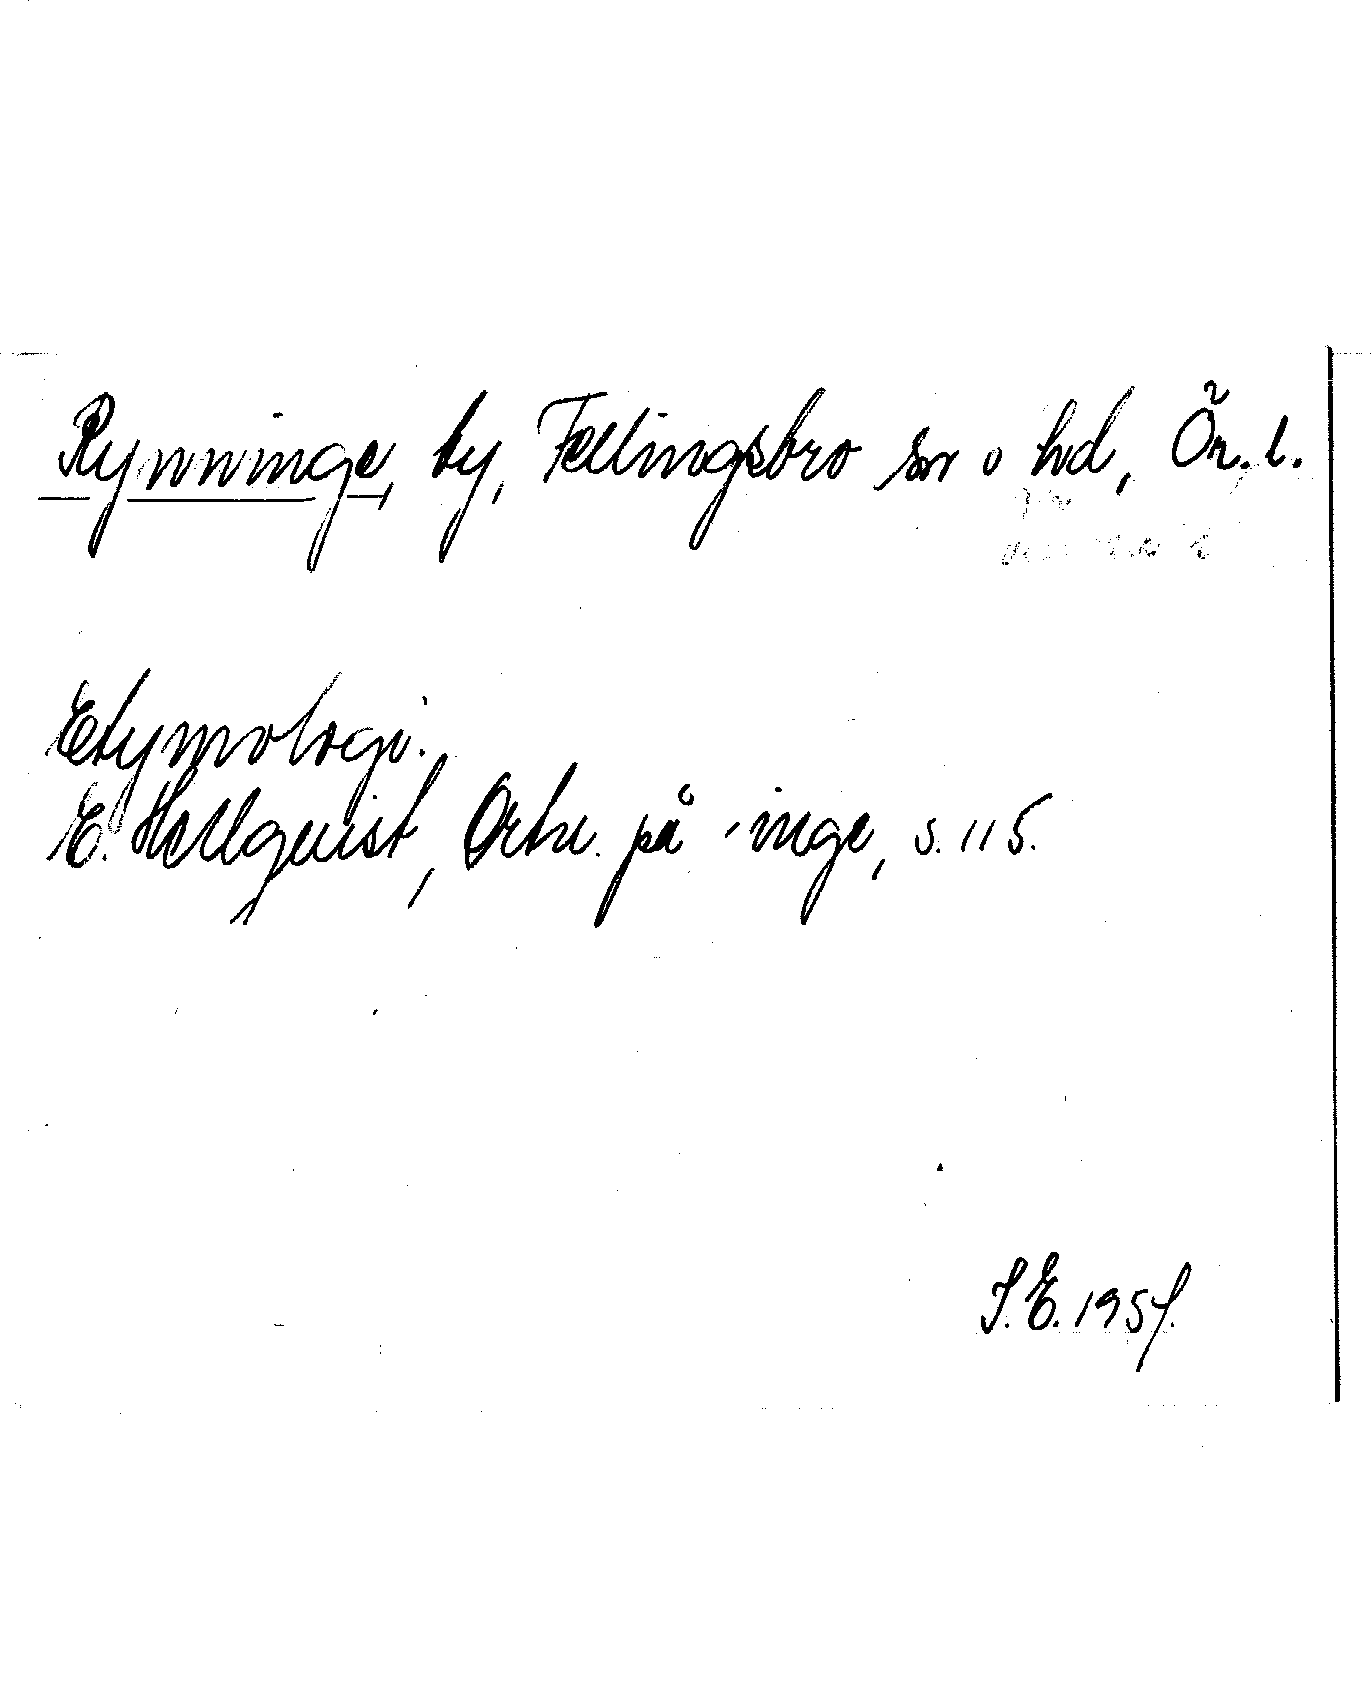 Rynninge, by, Fellingsbro sn o hd, Ör. l.
Etymologi.
E. Hellquist, Ortn. på -inge, s. 115.
S. E. 1957.